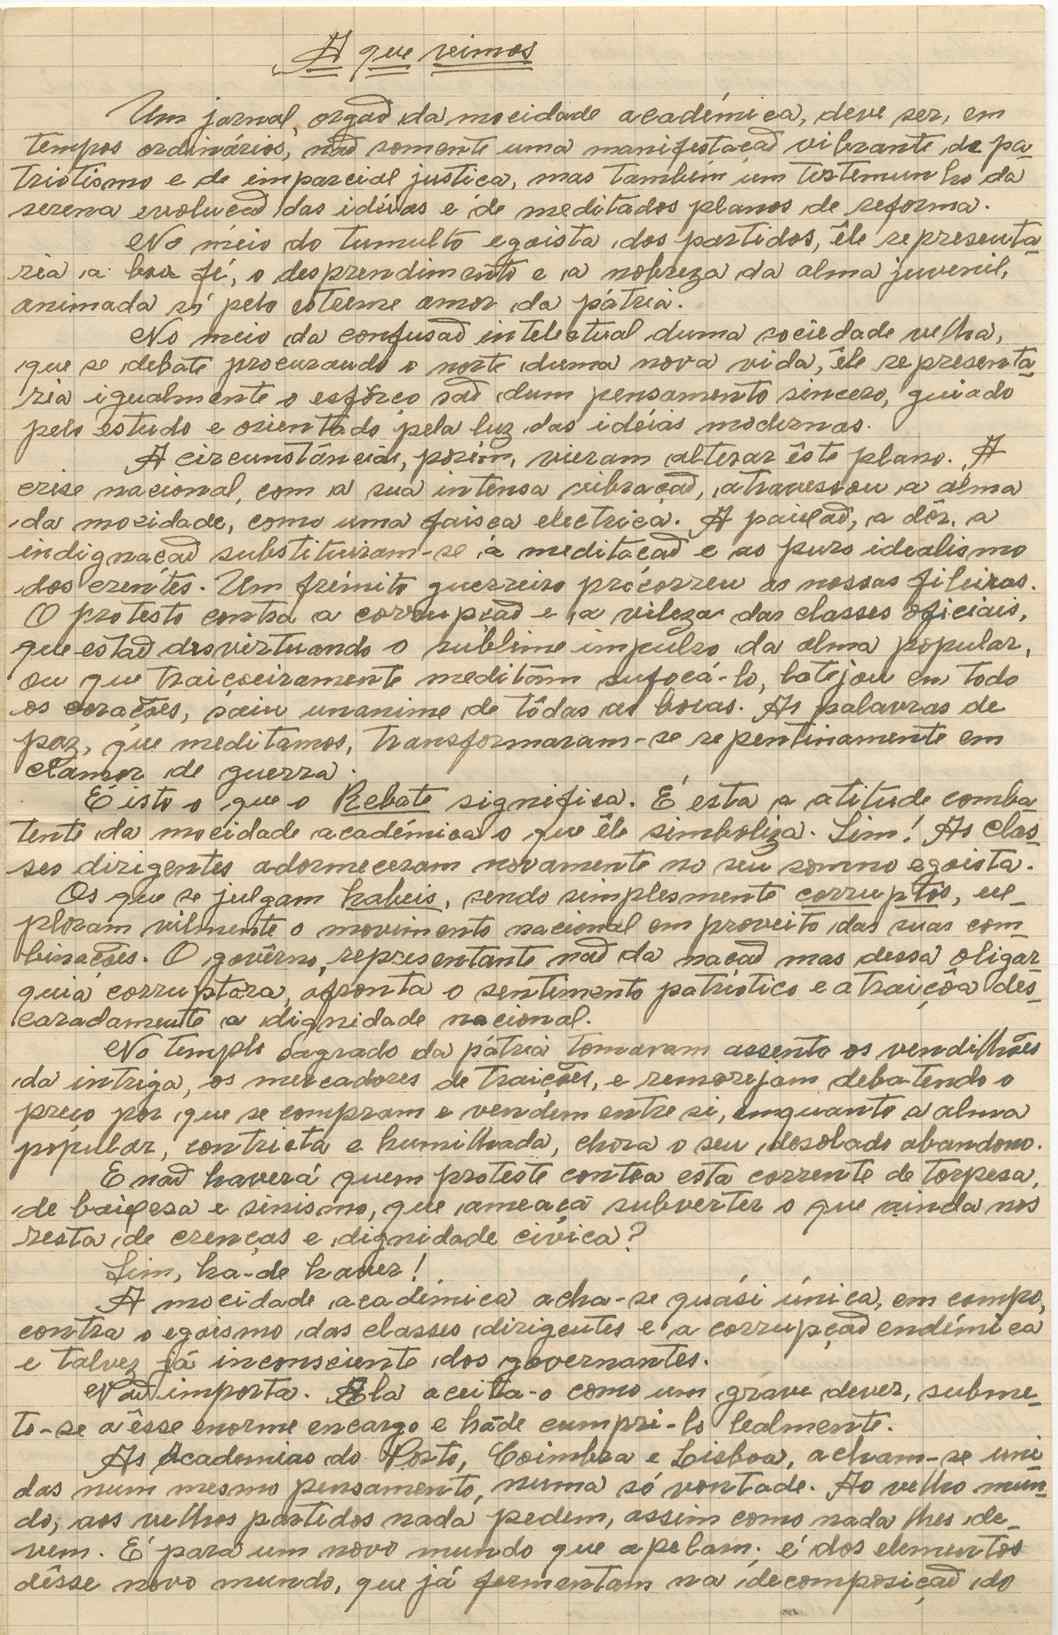 A que veimos
Um jornal, orgaõ da mocidade académica, deve ser, em
tempos ordinários, naõ somente uma manifestaçaõ vibrante de pa-
triotismo e de imparcial justiça, mas também um testemunho da
serena evoluçaõ das ideias e de meditados planos de reforma.
No meio do tumulto egoista dos partidos, êle representa-
ria a boa fé, o desprendimento e a nobreza da alma juvenil,
animada só pelo estreme amor da pátria.
No meio da confusaõ intelectual duma sociedade velha,
que se debate procurando o norte duma nova vida, êle representa-
ria igualmente o esfôrço saõ dum pensamento sincero, guiado
pelo estudo e orientado pela luz das idéias modernas.
A circunstâncias, porém, vieram alterar êste plano. A
crise nacional, com a sua intensa vibraçaõ, atravessou a alma
da mocidade, como uma faisca electrica. A paixaõ, a dôr, a
indignaçaõ substituiram-se á meditaçaõ e ao puro idealismo
dos crentes. Um frémito guerreiro precorreu as nossas fileiras.
O protesto contra a corrupçaõ e a vileza das classes oficiais,
que estaõ desvirtuando o sublime impulso da alma popular,
ou que traiçoeiramente meditam sufocá-lo, latejou em todo
os corações, saiu unanime de tôdas as bocas. As palavras de
paz, que meditamos, transformaram-se repentinamente em
clamor de guerra.
É isto o que o Rebate significa. É esta a atitude comba-
tente da mocidade académica o que êle simboliza. Sim! As clas-
ses dirigentes adormeceram novamente no seu somno egoista.
Os que se julgam habeis, sendo simplesmente corruptos, ex-
ploram vilmente o movimento nacional em proveito das suas com-
binações. O govêrno, representante naõ da naçaõ mas dessa oligar-
quia corruptora, afronta o sentimento patriotico e atraiçôa des-
caradamente a dignidade nacional.
No templo sagrado da pátria tomaram assento os vendilhões
da intriga, os mercadores de traições, e remorejam debatendo o
preço por que se compram e vendem entre si, emquanto a alma
popular, contricta e humilhada, chora o seu desolado abandono.
E naõ haverá quem proteste contra esta corrente de torpesa,
de baixesa e sinismo, que ameaça subverter o que ainda nos
resta de crenças e dignidade civica?
Sim, ha-de haver!
A mocidade académica acha-se quási única, em campo,
contra o egoismo das classes dirigentes e a corrupçaõ endémica
e talvez já inconsciente dos governantes.
Naõ importa. Ela aceita-o como um grave dever, subme-
to-se a êsse enorme encargo e háde cumpri-lo lealmente.
As Academias do Porto, Coimbra e Lisboa, acham-se uni-
das num mesmo pensamento, numa só vontade. Ao velho mun-
do, aos velhos partidos nada pedem, assim como nada lhes de-
vem. É para um novo mundo que apelam; é dos elementos
dêsse novo mundo, que já fermentam na decomposiçaõ do